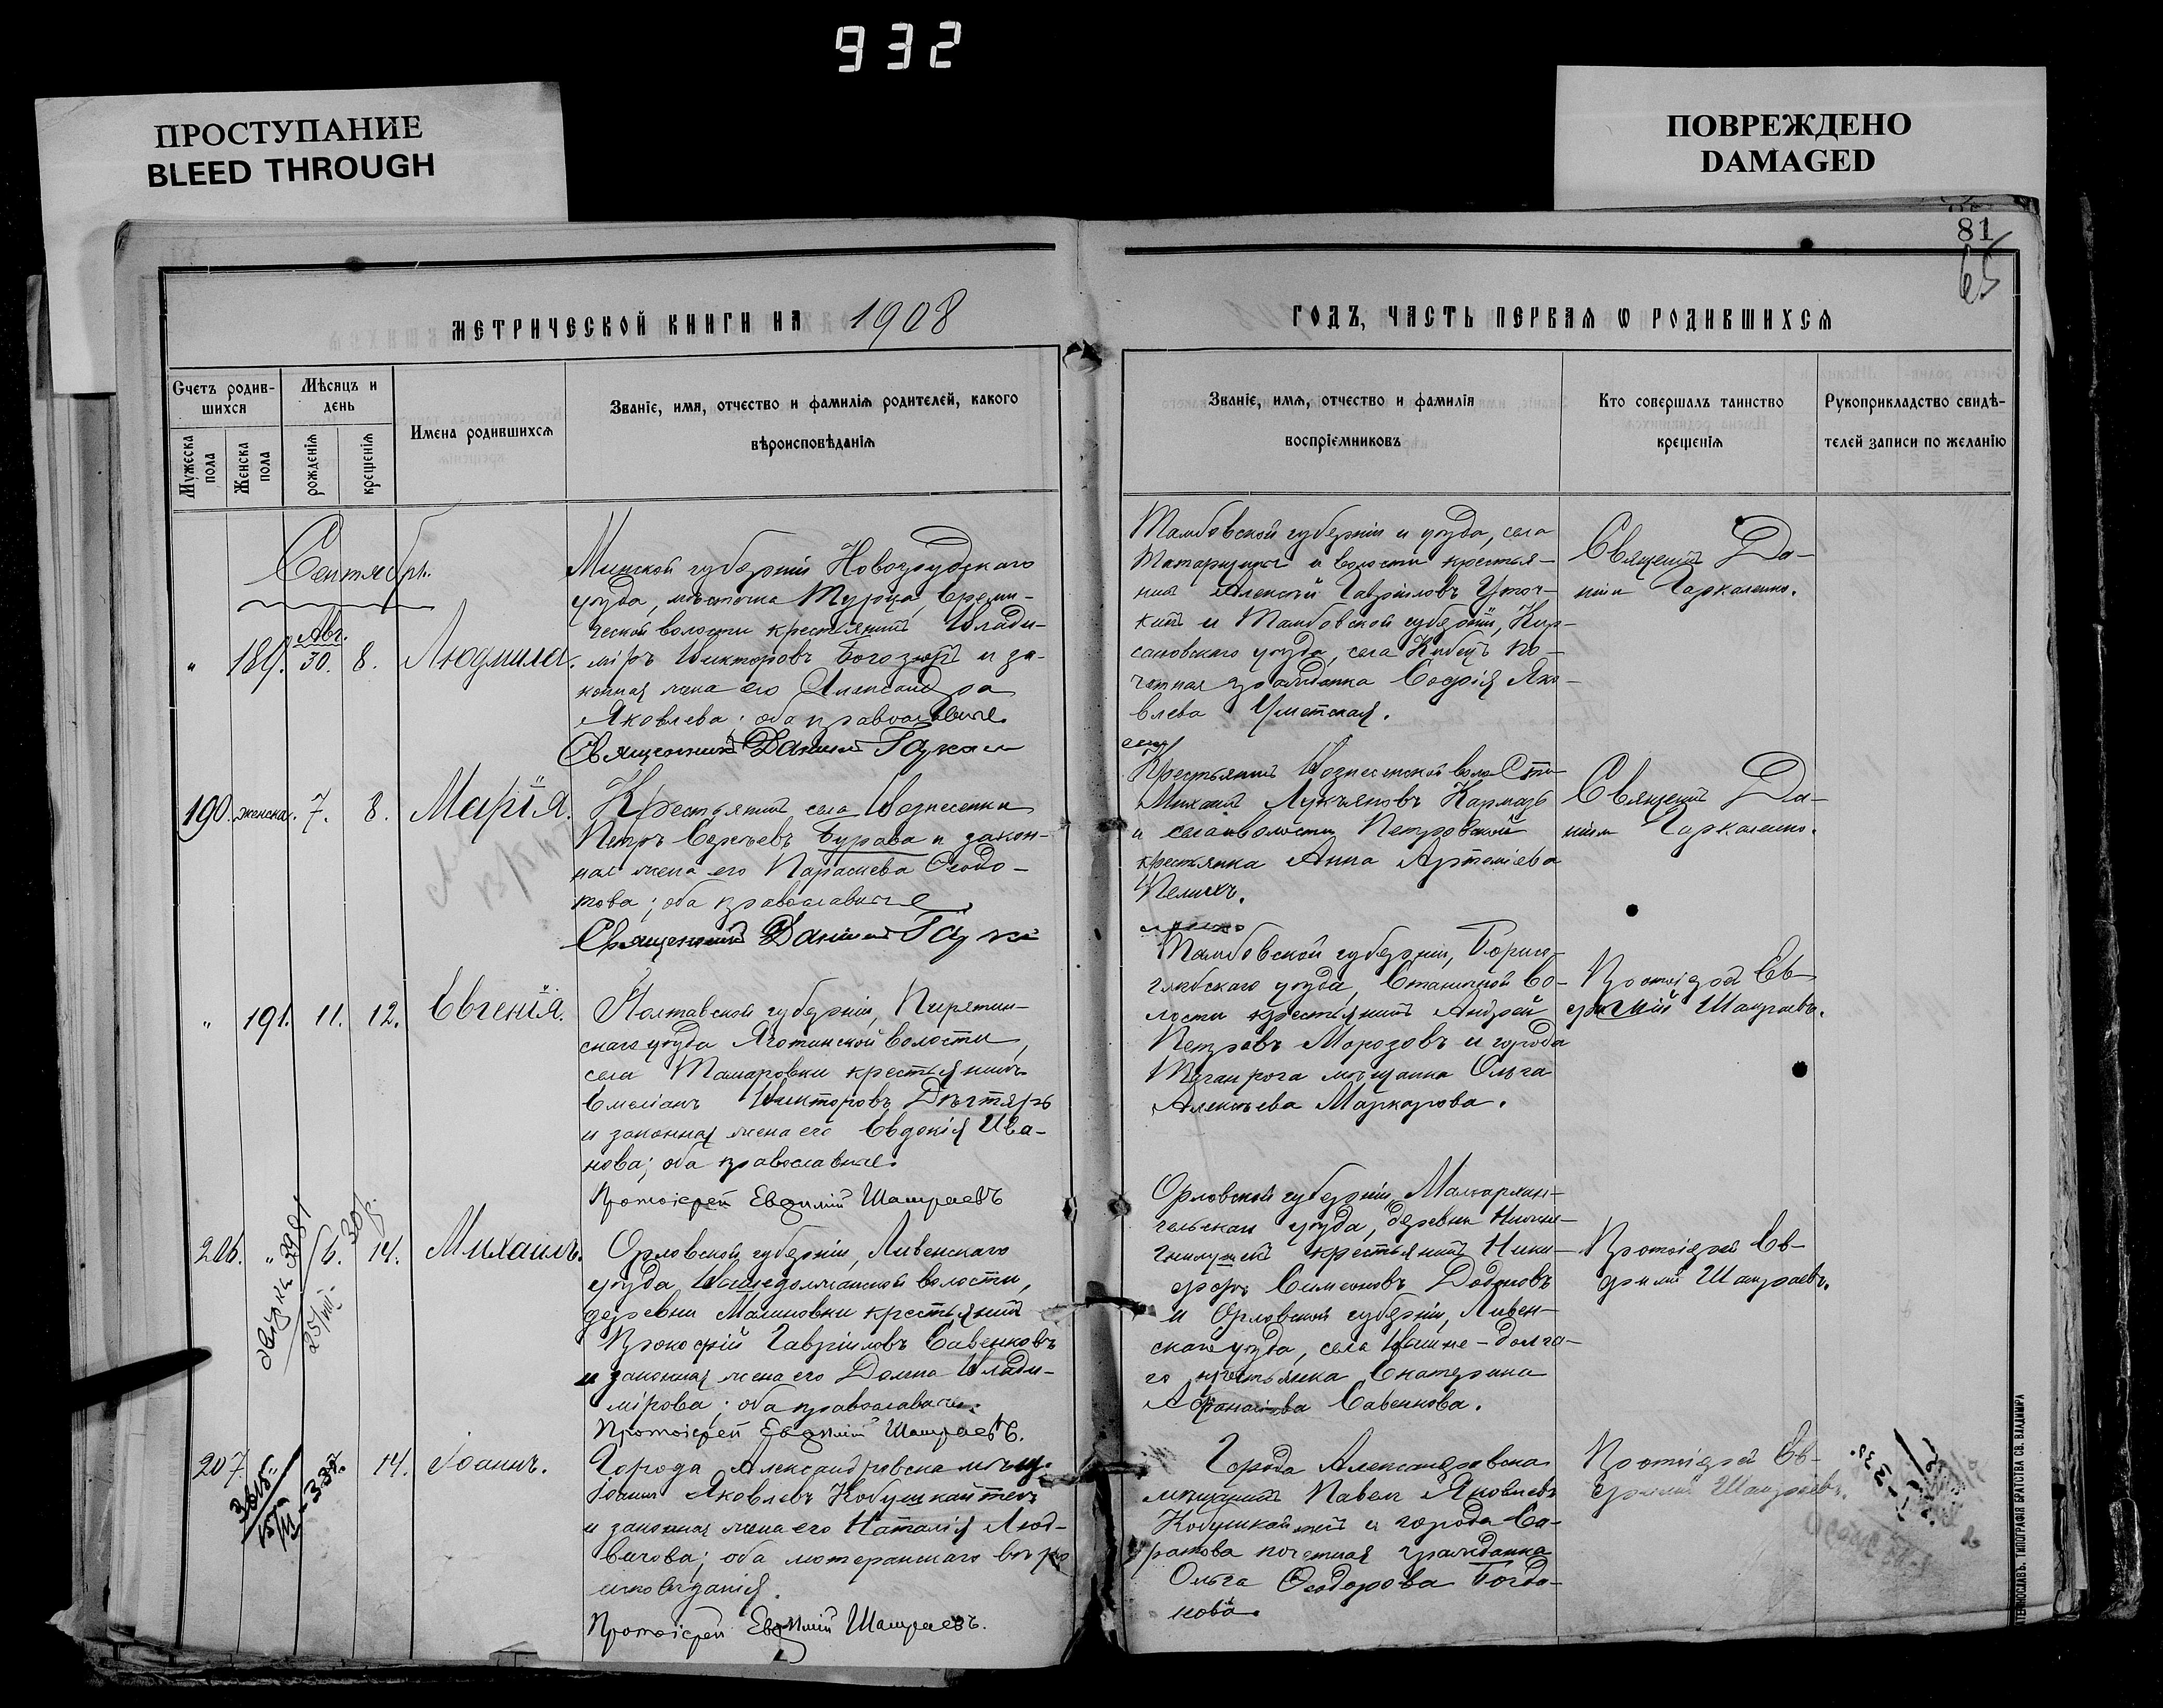 932
ПРОСТУПАНИЕ
BLEED THROUGH
ПОВРЕЖДЕНО
DAMAGED
81
65
МЕТРИЧЕСКОЙ КНИГИ НА 1908
ГОДЪ, ЧАСТЬ ПЕРВАЯ Ѡ РОДИВШИХСЯ
Счетъ родив-
шихся
Мужеска пола
Женска пола
Мѣсяцъ и
день
рожденія
крещенія
Имена родившихся
Званіе, имя, отчество и фамилія родителей, какого
вѣроисповѣданія
Званіе, имя, отчество и фамилія
воспріемниковъ
Кто совершалъ таинство
крещенія
Рукоприкладство свидѣ-
телей записи по желанію
Сентябрь.
„ 189. Авг. 30. 8. Людмила.
Минской губерніи Новогрудскаго
уѣзда, мѣстечка Турца,
волости крестьянинъ Влади-
міръ Викторовъ и за-
конная жена его Александра
Яковлева; оба православные.
Священникъ Даніилъ
Тамбовской губерніи и уѣзда, села
и волости крестья-
нинъ Алексѣй Гавріиловъ
и Тамбовской губерніи, Кир-
сановскаго уѣзда, села по-
четная гражданка Софія Яко-
влева Уметская.
Священникъ Да-
ніилъ Гаркаленко.
190. женска. 7. 8. Марія.
Крестьянинъ села Вознесенки
Петръ Сергѣевъ Бурава и закон-
ная жена его Параскева Ѳеодо-
това; оба православные
Священникъ Даніилъ
Крестьянинъ Вознесенской волости
Михаилъ Лукьяновъ Кармазь
и села и волости Петровской
крестьянка Анна Артеміева
Пелихъ.
Священникъ Да-
ніилъ Гаркаленко.
„ 191. 11. 12. Евгенія.
Полтавской губерніи, Пирятин-
скаго уѣзда Яготинской волости,
села крестьянинъ
Емеліанъ Викторовъ Дегтярь
и законная жена его Евдокія Ива-
нова; оба православные.
Протоіерей Евѳимій Шашраевъ
Тамбовской губерніи, Борисо-
глѣбскаго уѣзда, Станичной во-
лости крестьянинъ Андрей
Петровъ Морозовъ и города
Таганрога мѣщанка Ольга
Алексѣева Маркарова.
Протоіерей Ев-
ѳимій Шашраевъ.
206. „ 6. 14. Михаилъ.
Орловской губерніи, Ливенскаго
уѣзда, волости,
деревни Малиновки крестьянинъ
Прокофій Гавріиловъ Савенковъ
и законная жена его Домна Влади-
мірова; оба православные.
Протоіерей Евѳимій Шашраевъ.
Орловской губерніи, Малоархан-
гельскаго уѣзда, деревни
крестьянинъ Ники-
форъ Симеоновъ Додоновъ
и Орловской губерніи, Ливен-
скаго уѣзда, села -долга-
го крестьянка Екатерина
Аѳанасіева Савенкова.
Протоіерей Ев-
ѳимій Шашраевъ.
207. 14. Іоаннъ.
Города Александровска мѣщ.
Іоаннъ Яковлевъ
и законная жена его Наталія Люд-
вигова; оба лютеранскаго вѣро
исповѣданія.
Протоіерей Евѳимій Шашраевъ.
Города Александровска
мѣщанинъ Павелъ Яковлевъ
и города Са-
ратова почетная гражданка
Ольга Ѳеодорова Богда-
нова.
Протоіерей Ев-
ѳимій Шашраевъ.
ТИПОГРАФІЯ БРАТСТВА СВ. ВЛАДИМІРА